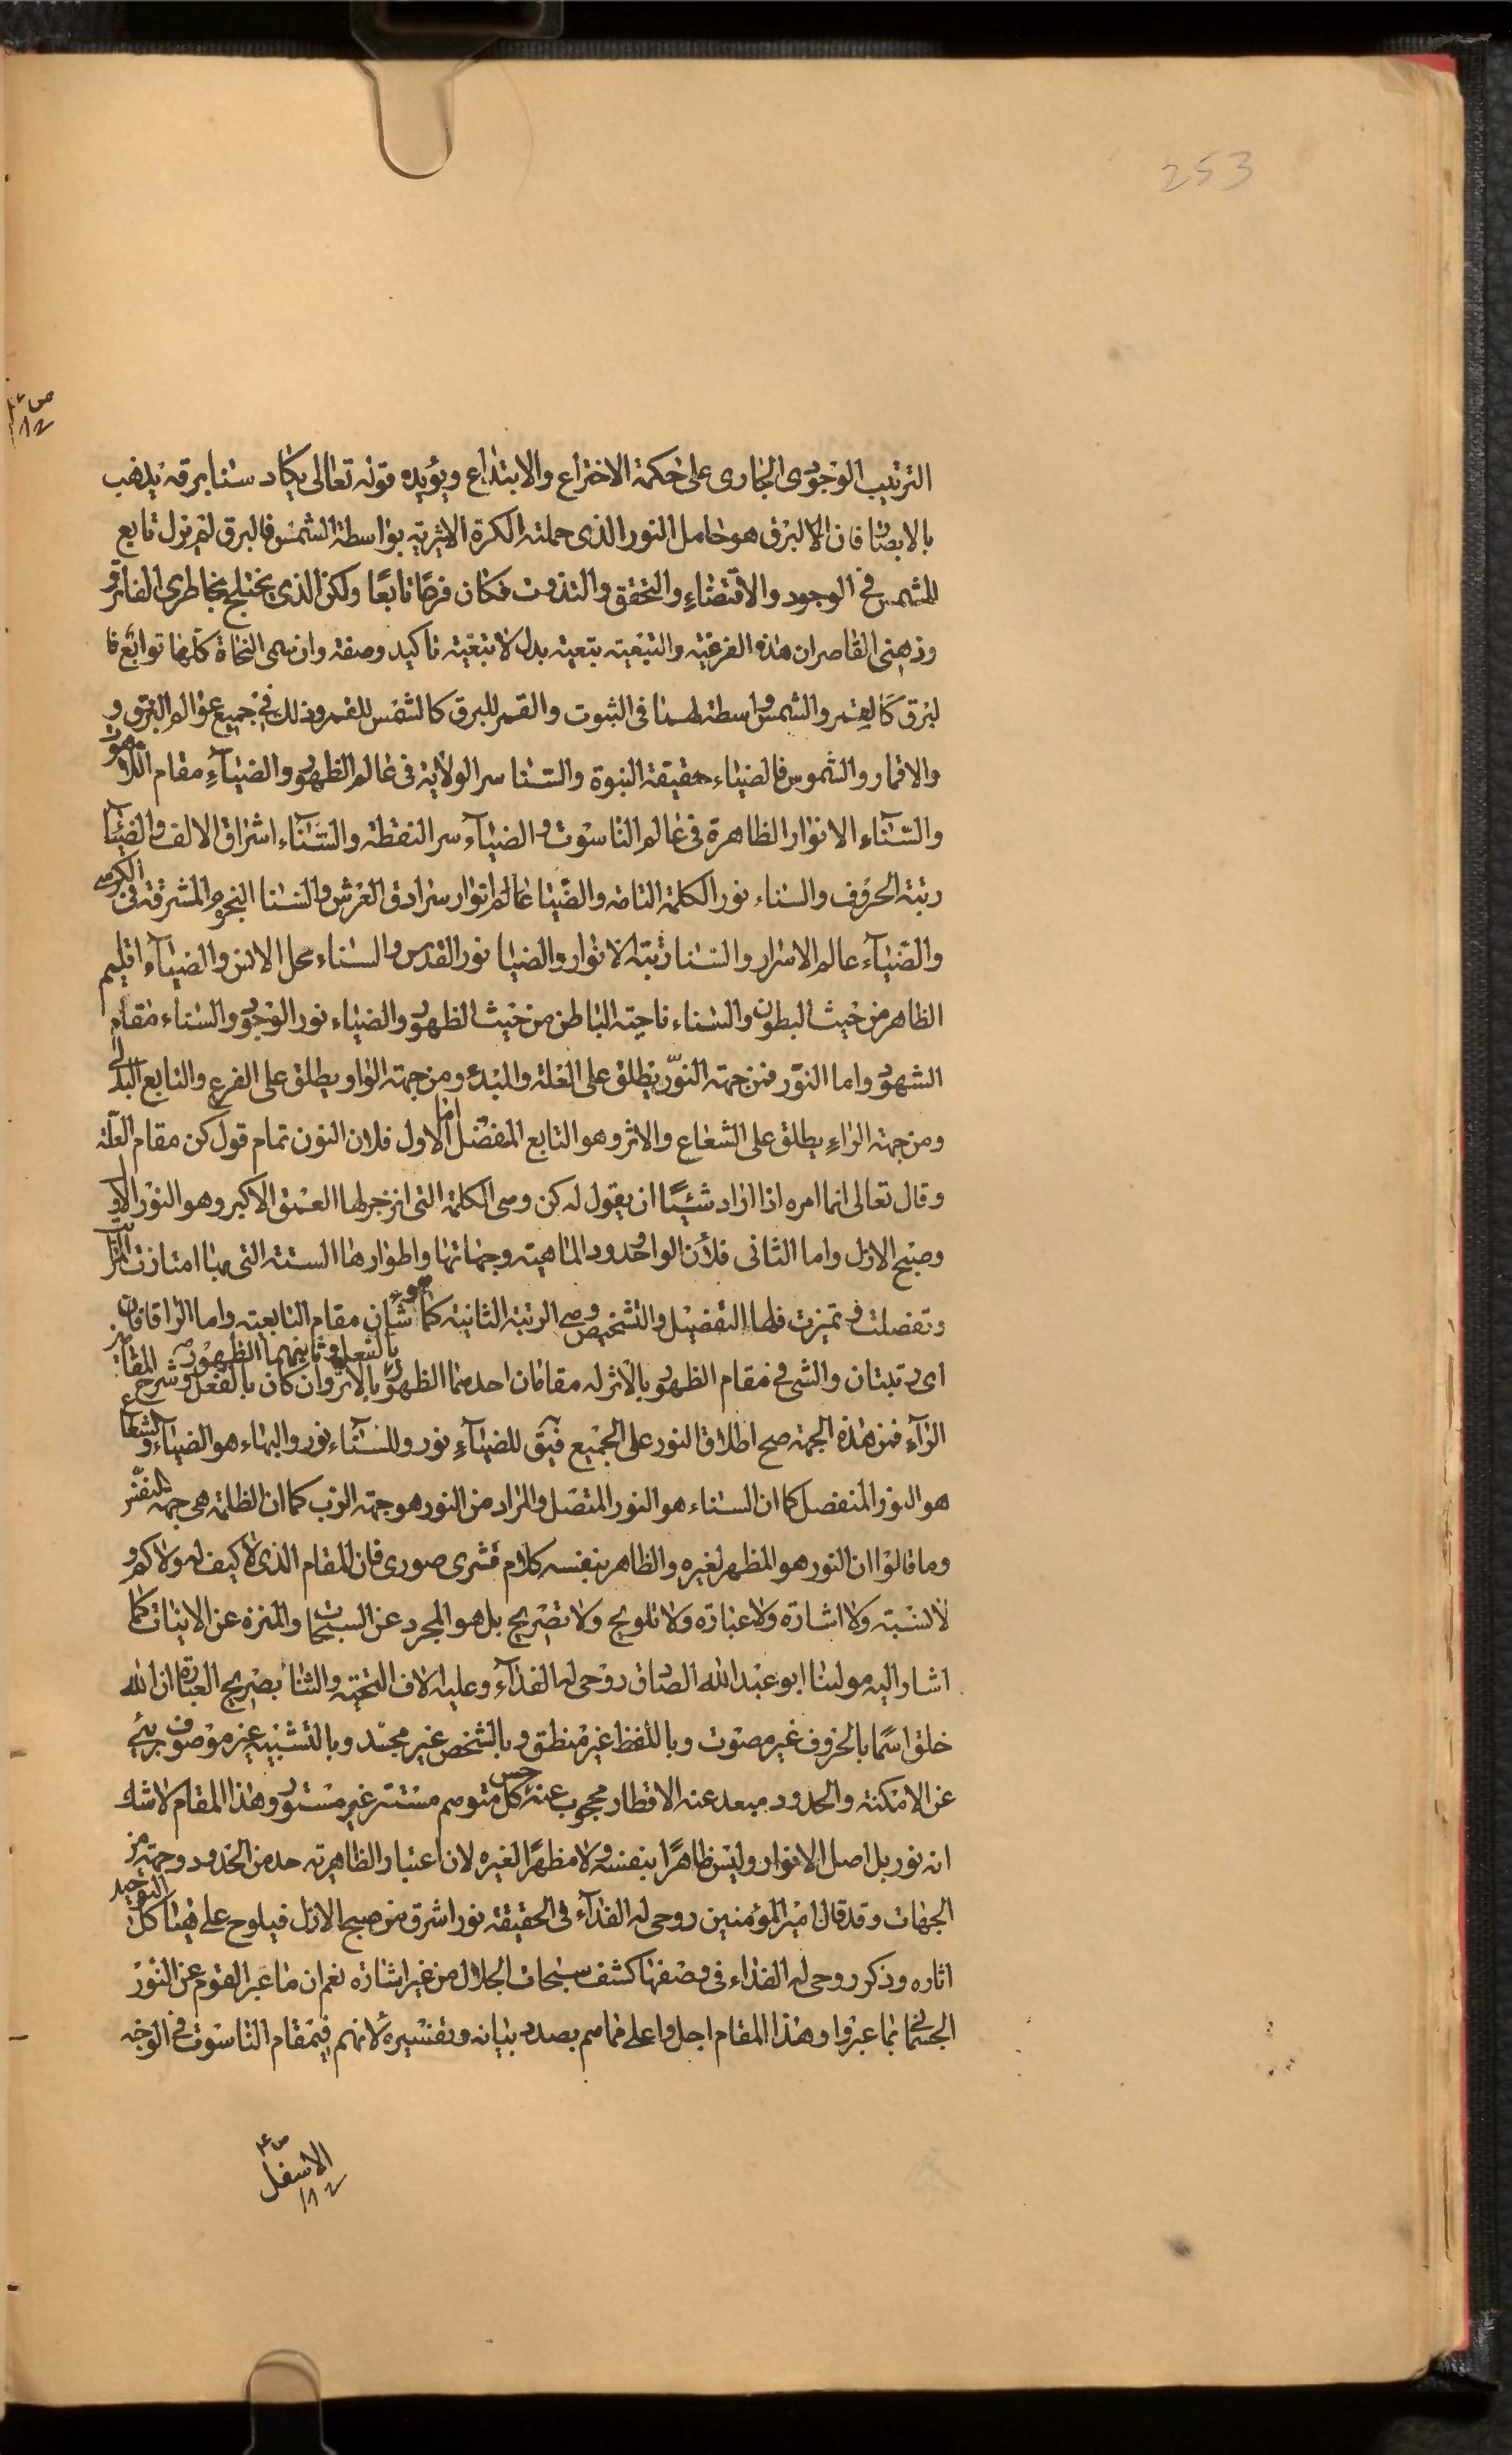 253
الترتيب الوجودى الجارى على حكمة الاختراع والابتداع ويؤيده قوله تعالى يكاد سنا برقه يذهب
بالابصار فان البرق هو حامل النور الذى حملته الكرة الاثيرية بواسطة الشمس فالبرق لم يزل تابع
للشمس فى الوجود والاقتضاء والتحقق والتذوت فكان فرعًا تابعًا ولكن الذى يختلج بخاطرى الفاتر و
وذهنى القاصر ان هذه الفرعية والتبعية تبعية بدل لا تبعية تاكيد وصفة وان سمى النحاة كلها توابع فا
لبرق كالقمر والشمس واسطة لهما فى الثبوت والقمر للبرق كالشمس للقمر وذلك فى جميع عوالم البرق و
والاقمار والشموس فالضياء حقيقة النبوة والسنا سر الولاية فى عالم الظهور والضياء مقام اللاهوت
والسناء الانوار الظاهرة فى عالم الناسوت والضياء سر النقطة والسناء اشراق الالف والضياء
رتبة الحروف والسناء نور الكلمة التامة والضيا عالم انوار سرادق العرش والسنا النجوم المشرقة فى الكرسى
والضياء عالم الاسرار والسنا رتبة الانوار والضيا نور القدس والسناء محل الانس والضياء اقليم
الظاهر من حيث البطون والسناء ناحية الباطن من حيث الظهور والضياء نور الوجود والسناء مقام
الشهود واما النور فمن جهة النون يطلق على العلة والمبدء ومن جهة الواو يطلق على الفرع والتابع البدلى
ومن جهة الراء يطلق على الشعاع والاثر وهو التابع المنفصل اما الاول فلان النون تمام قول كن مقام العلة
وقال تعالى انما امره اذا اراد شيئًا ان يقول له كن وهى الكلمة التى انزجر لها العمق الاكبر وهو النور
وصبح الازل واما الثانى فلأن الواو حدود الماهية وجهاتها واطوارها الستة التى بها امتازت
وتفصلت وتميزت فلها التفصيل والتشخيص وهى الرتبة الثانية كما هو شان مقام التابعية واما الراء
اى رتبتان والشىء فى مقام الظهور بالاثر له مقامان احدهما الظهور بالاثر وان كان بالفعل
بالفعل وثانيهما الظهور
الراء فمن هذه الجهة صح اطلاق النور على الجميع فيق للضياء نور وللسناء نور والبهاء هو الضياء والشعاع
هو النور المنفصل كما ان السناء هو النور المتصل والمراد من النور هو جهة الرب كما ان الظلمة هى جهة النفس
وما قالوا ان النور هو المظهر لغيره والظاهر بنفسه كلام قشرى صورى فان المقام الذى لا كيف له ولا كم و
لا نسبة ولا اشارة ولا عبارة ولا تلويح ولا تصريح بل هو المجرد عن السبحات والمنزه عن الانيات كما
اشار اليه مولينا ابو عبد الله الصادق روحى له الفداء وعليه الاف التحية والثناء بصريح العبارة ان الله
خلق اسمًا بالحروف غير مصوت وباللفظ غير منطق وبالشخص غير مجسد وبالتشبيه غير موصوف برئ
عن الامكنة والحدود مبعد عنه الاقطار محجوب عنه حس كل متوهم مستتر غير مستور وهذا المقام لا شك
انه نور بل اصل الانوار وليس ظاهرًا بنفسه ولا مظهرًا لغيره لان اعتبار الظاهرية حد من الحدود وجهة من
الجهات وقد قال امير المؤمنين روحى له الفداء فى الحقيقة نور اشرق من صبح الازل فيلوح على هياكل التوحيد
اثاره وذكر روحى له الفداء فى وصفها كشف سبحات الجلال من غير اشارة نعم ان ما عبر القوم عن النور
الجسمانى بما عبروا وهذا المقام اجل واعلى مما هم بصدد بيانه وتفسيره لانهم فى مقام الناسوت فى الوجه
الاسفل